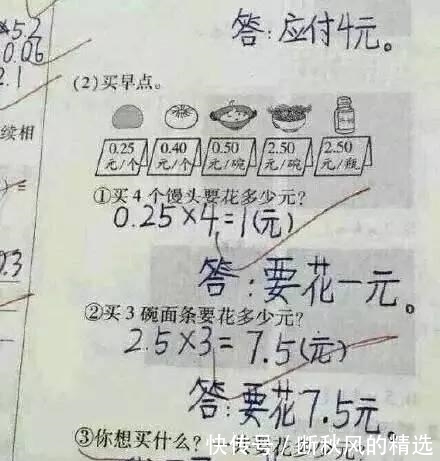 ×5.2
0.06
2.1
答：应付4元。
(2)买早点。
续相
0.25 0.40 0.50 2.50 2.50
元/个 元/个 元/碗 元/碗 元/瓶
①买4个馒头要花多少元?
0.25×4=1(元)
0.3
答：要花一元。
②买3碗面条要花多少元?
2.5×3=7.5(元)
答：要花7.5元
③你想买什么?一共要花多少元?
快传号/断秋风的精选